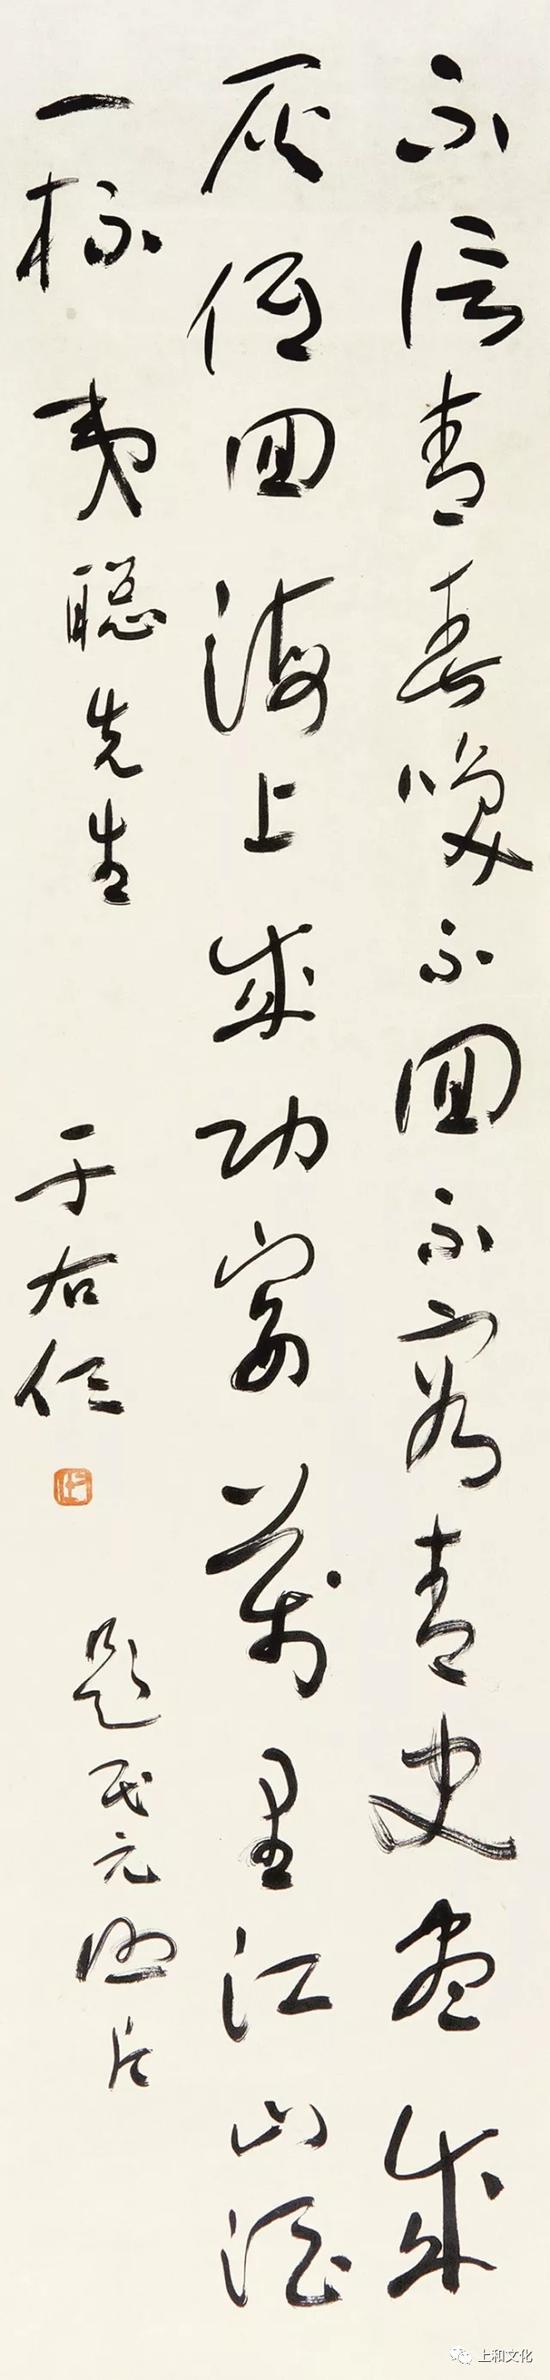 不信青春喚不回不容青史盡成
灰低回海上成功宴萬里江山酒
一杯 夷聰先生
于右任
題民元照片
上和文化